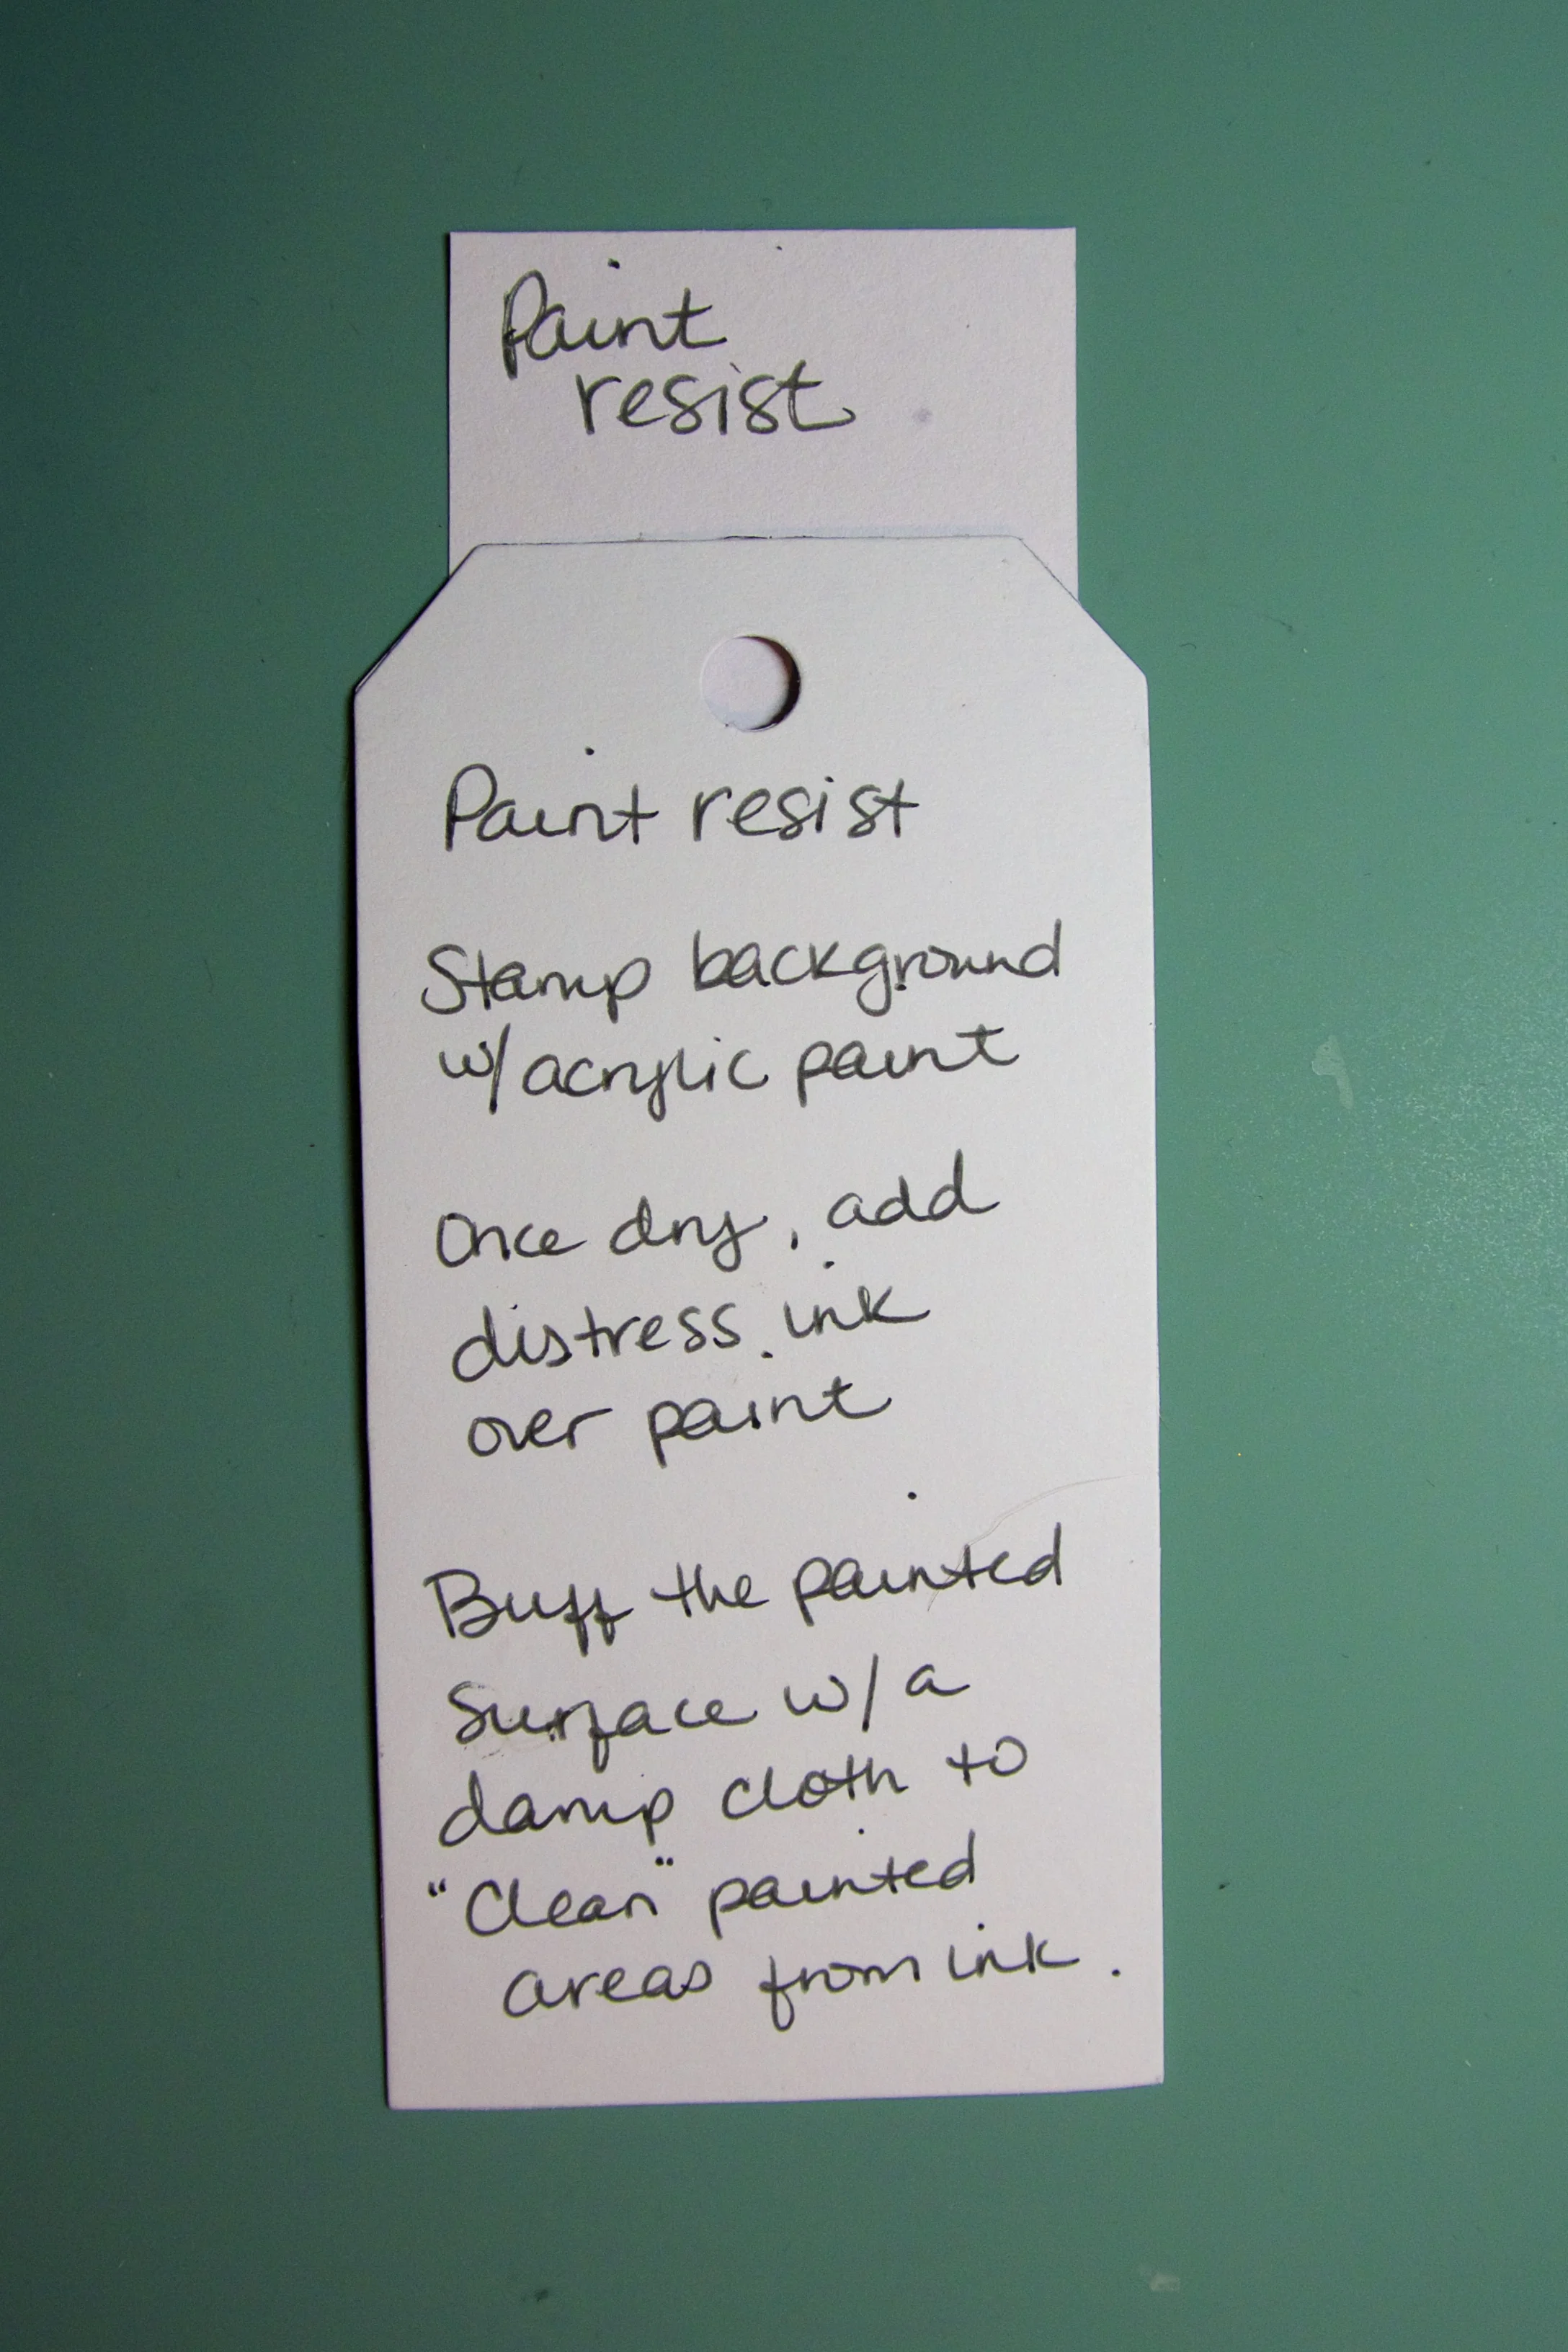 Paint
resist
Paint resist
Stamp background
w/ acrylic paint
Once dry, add
distress ink
over paint
Buff the painted
Surface w/ a
damp cloth to
"Clean" painted
areas from ink.